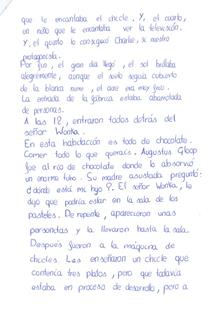 que le encantaba el chicle. Y, el cuarto,
un niño que le encantaba ver la televisión.
Y, el quinto lo consiguió Charlie, nuestro
protagonista.
Por fin, el gran día llegó, el sol brillaba
alegremente, aunque el suelo seguía cubierto
de la blanca nieve, el aire era muy frío.
La entrada de la fábrica estaba abarrotada
de personas.
A las 12, entraron todos detrás del
señor Wonka.
En esta habitación es todo de chocolate.
Comer todo lo que queráis. Augustus Gloop
fue al río de chocolate donde lo absorvió
un enorme tubo. Su madre asustada preguntó:
¿dónde está mi hijo?. El señor Wonka, le
dijo que podría estar en la sala de los
pasteles. De repente, aparecieron unas
personitas y la llevaron hasta la sala.
Después fueron a la máquina de
chicles. Les enseñaron un chicle que
contenía tres platos, pero que todavía
estaba en proceso de desarrollo, pero a